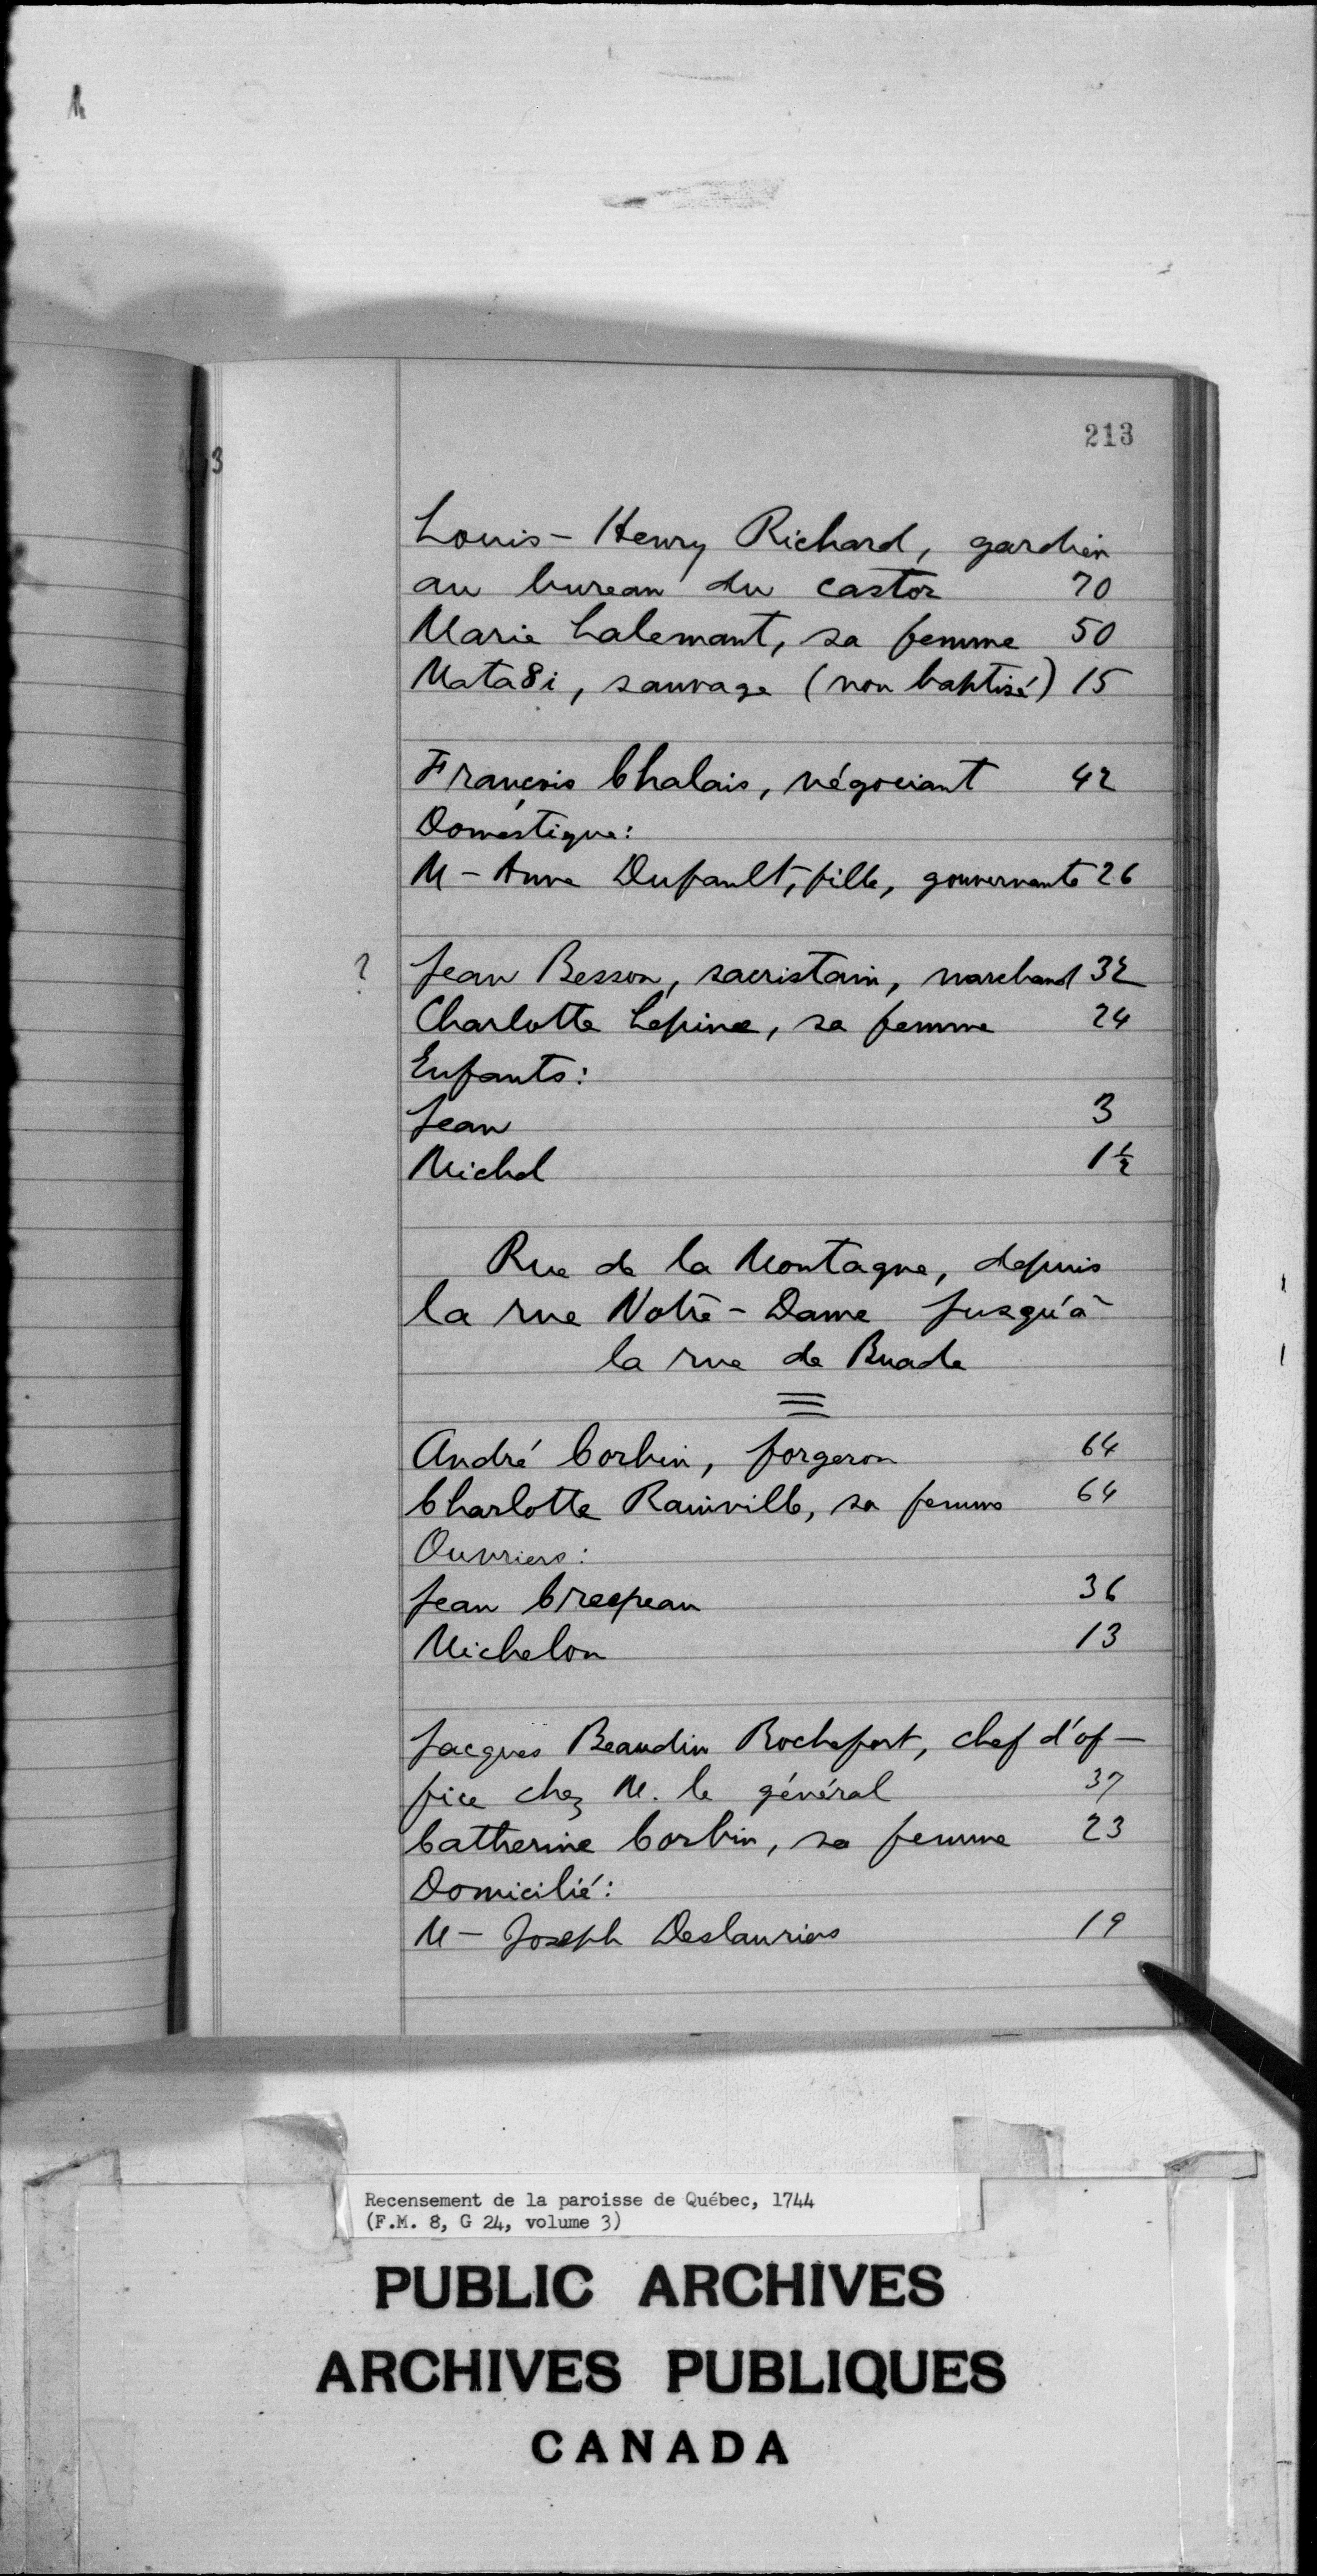 213
3
Louis-Henry Richard, gardien
au bureau du castor 70
Marie Lalemant, sa femme 50
Mata8i, sauvage (non baptisé) 15
François Chalais, négociant 42
Domestique:
M-Anne Dufault, fille, gouvernante 26
? Jean Besson, sacristain, marchand 32
Charlotte Lepine, sa femme 24
Enfants:
Jean 3
Michel 1½
Rue de la Montagne, depuis
la rue Notre-Dame jusqu'à
la rue de Buade
André Corbin, forgeron 64
Charlotte Rainville, sa femme 64
Ouvriers:
Jean Crespeau 36
Michelon 13
Jacques Beaudin Rochefort, chef d'of-
fice chez M. le général 37
Catherine Corbin, sa femme 23
Domicilié:
M-Joseph Deslauriers 19
Recensement de la paroisse de Québec, 1744
(F.M. 8, G 24, volume 3)
PUBLIC ARCHIVES
ARCHIVES PUBLIQUES
CANADA